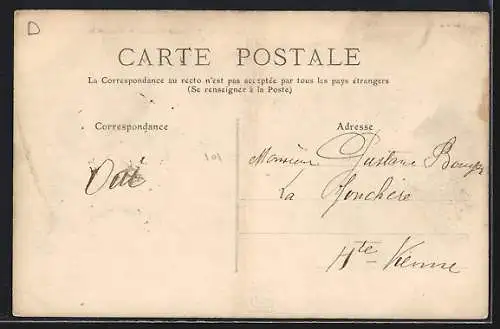 D
CARTE POSTALE
La Correspondance au recto n'est pas acceptée par tous les pays étrangers
(Se renseigner à la Poste)
Correspondance
Adresse
Monsieur Gustave
La Jonchère
Hte-Vienne